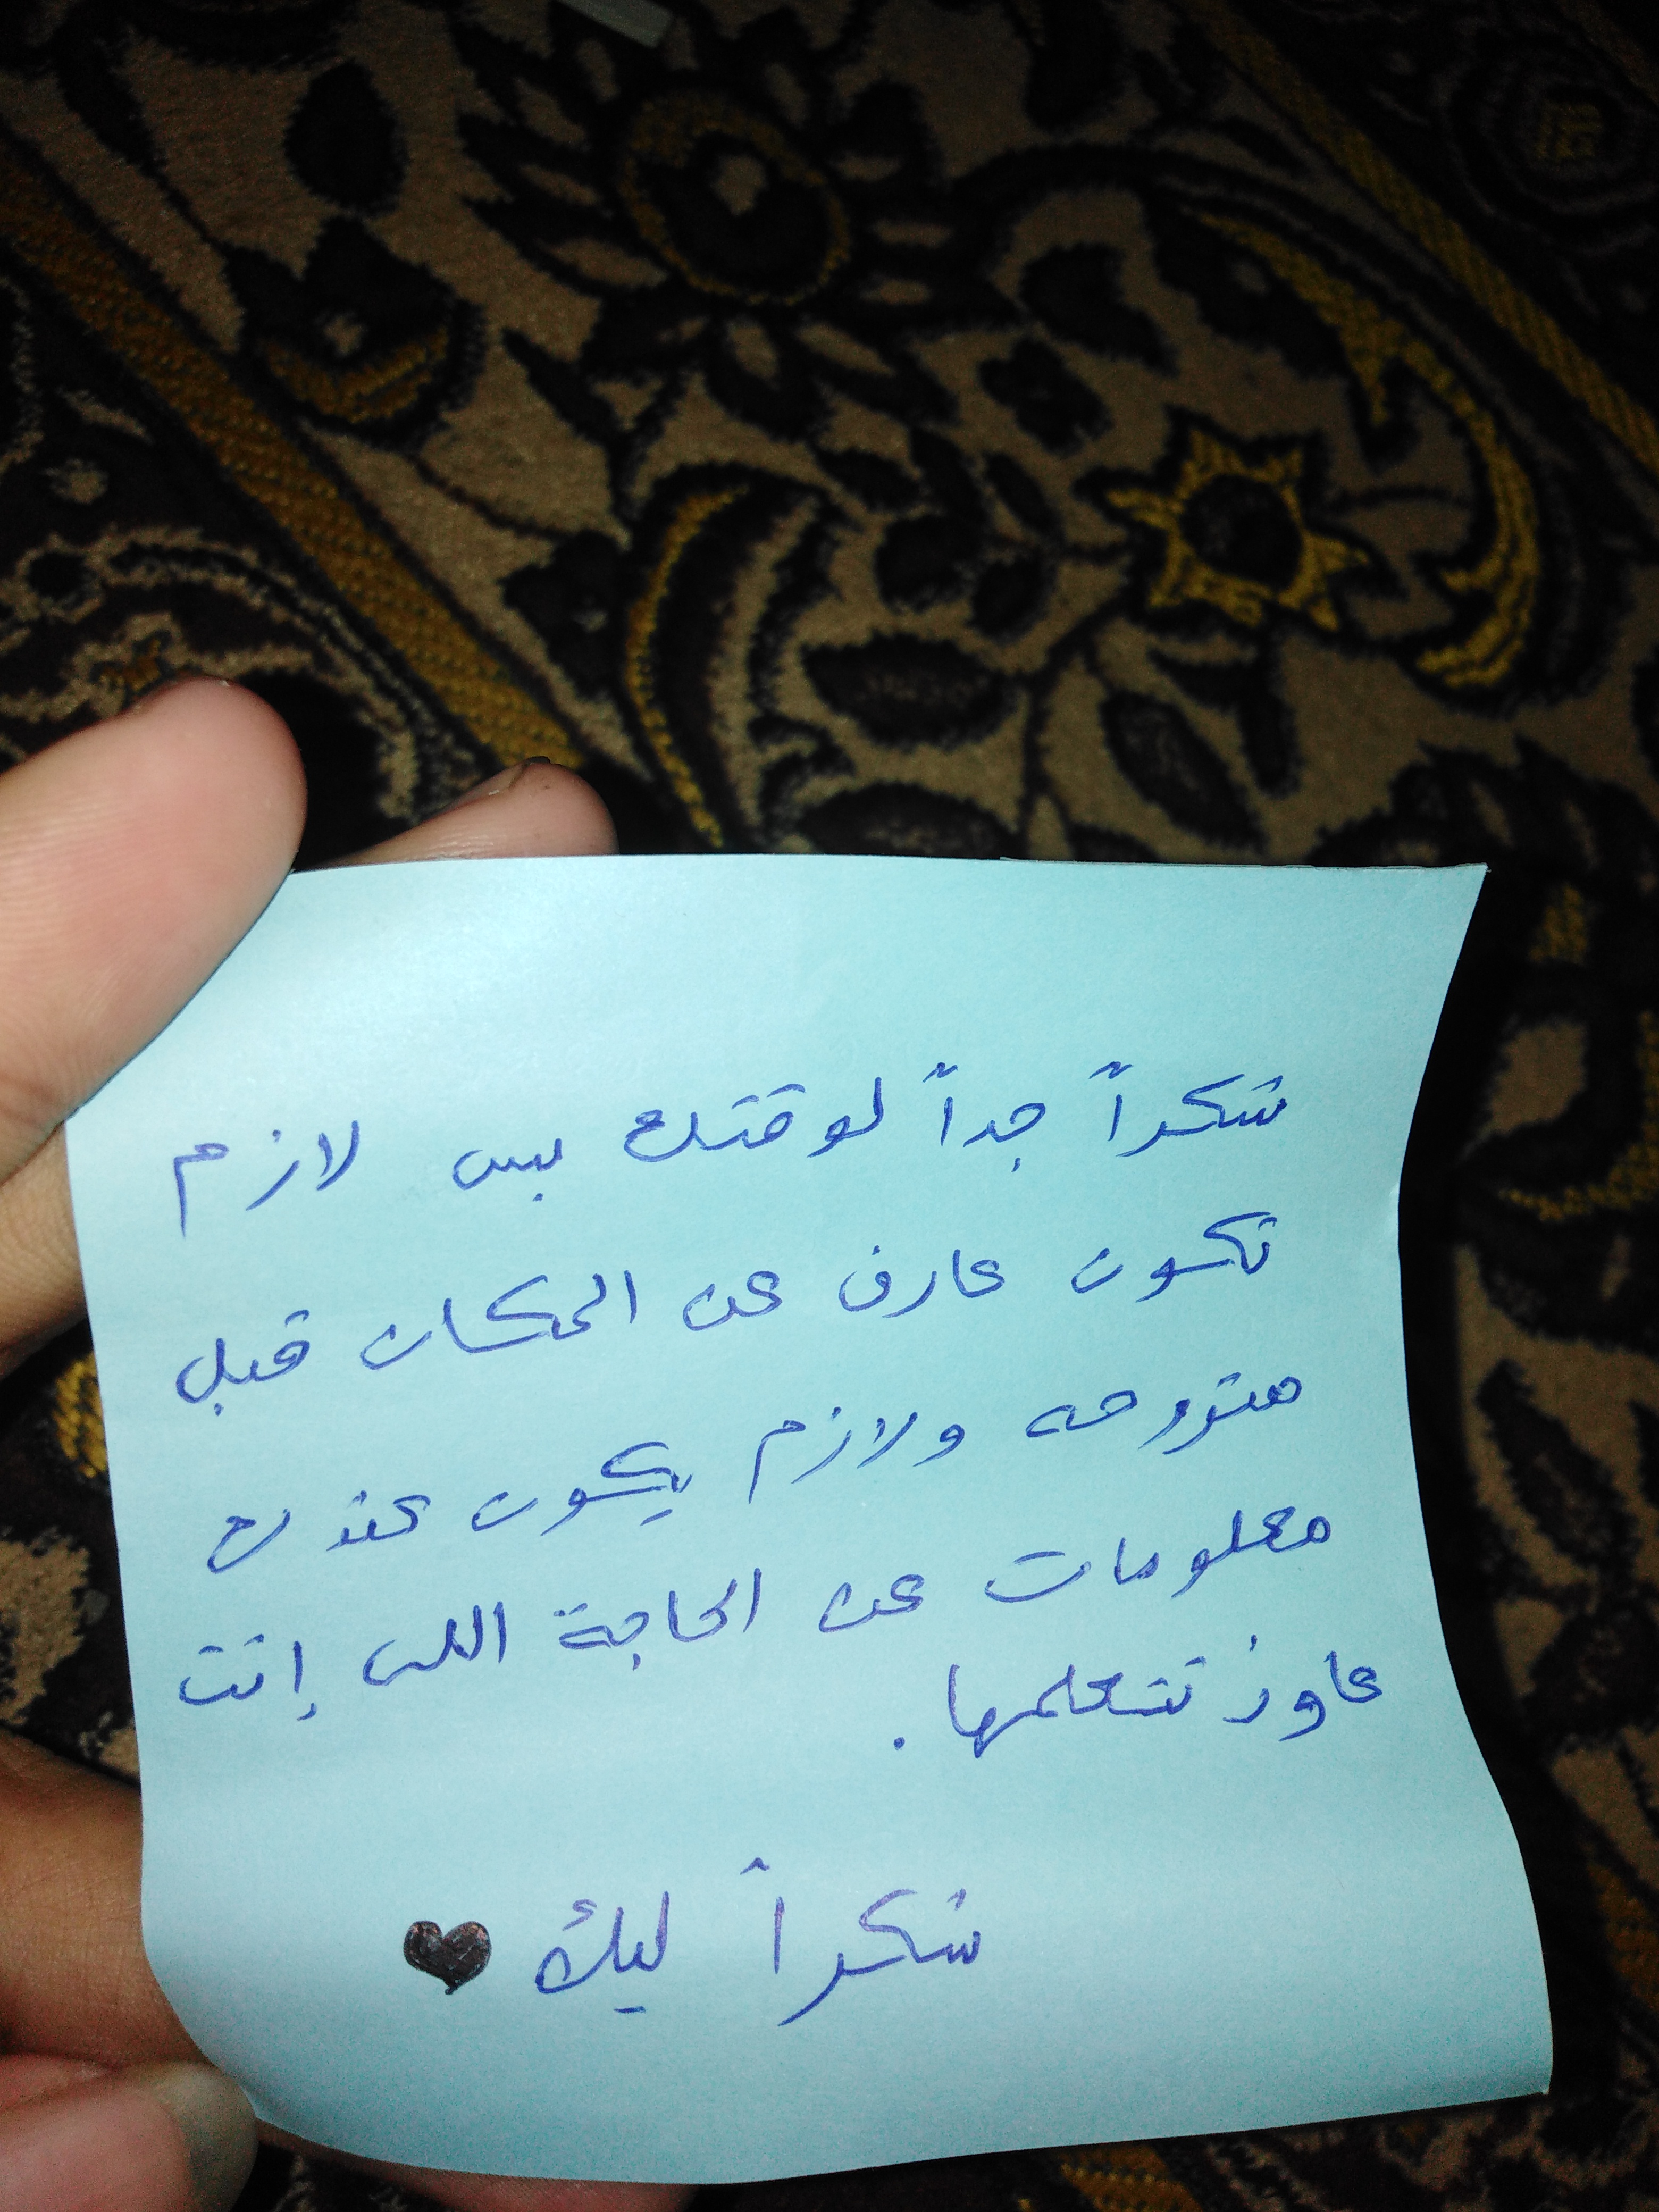 شكراً جداً لوقتك بس لازم
تكون عارف عن المكان قبل
متروحه ولازم يكون عندك
معلومات عن الحاجة اللى إنت
عاوز تتعلمها.
شكراً ليك